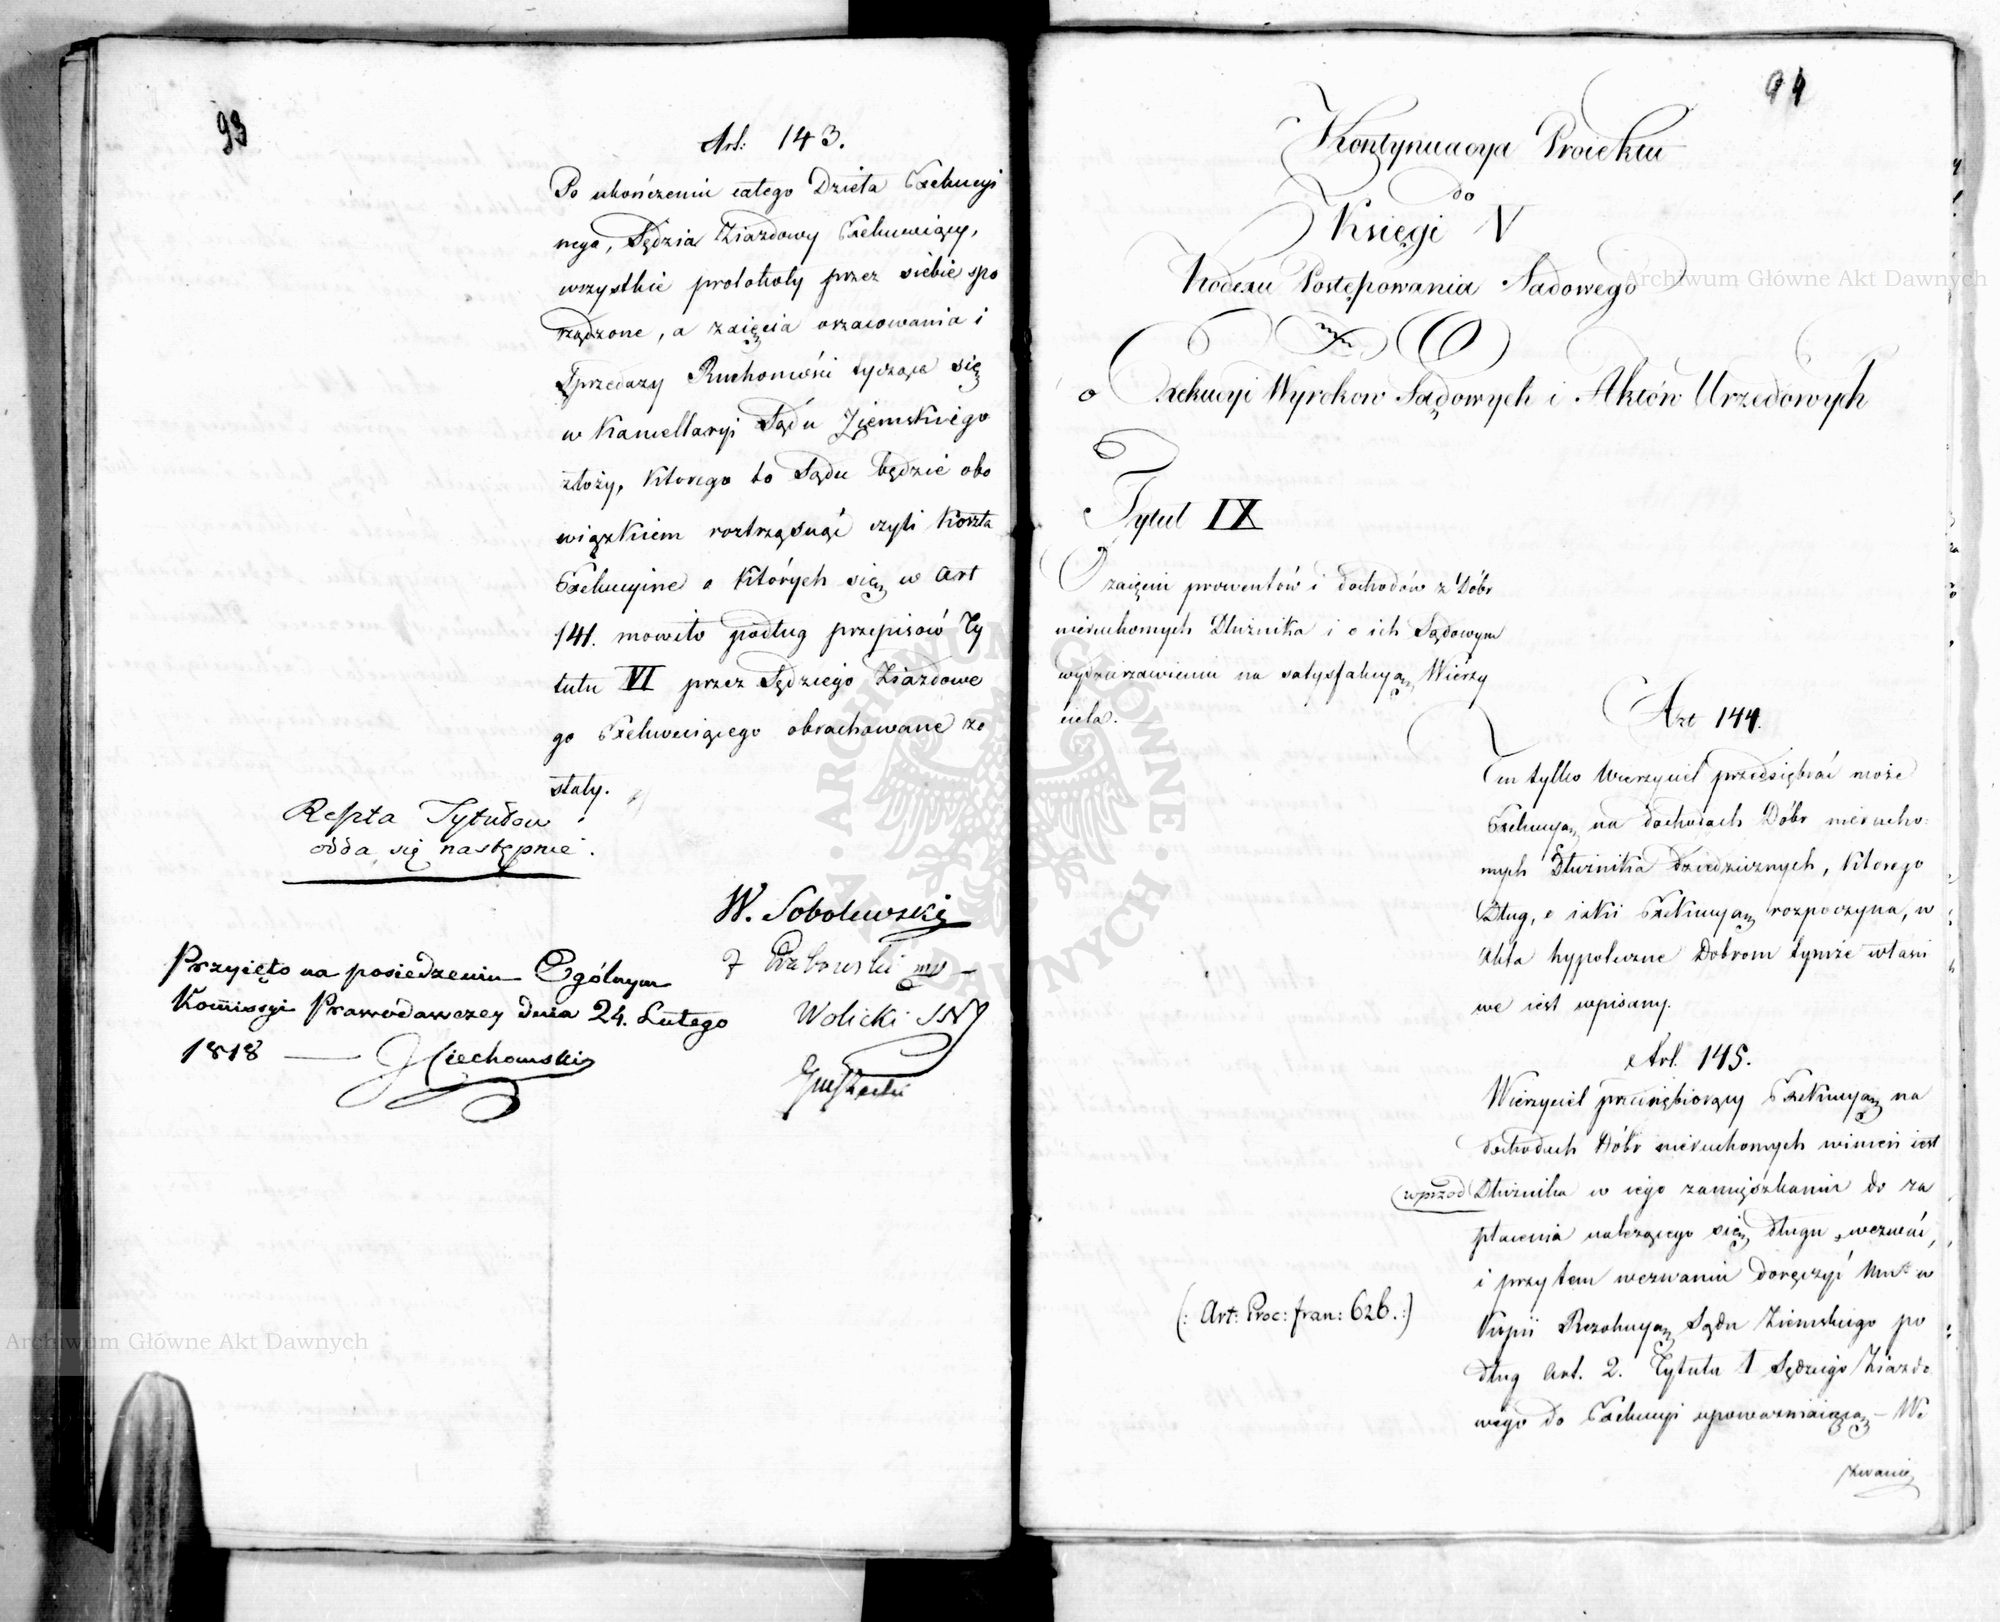 93
Art: 143.
Po ukończeniu całego Dzieła Exekucyi
nego, Sędzia Ziazdowy Exekwuiący,
wszystkie protokoły przez siebie spo
rządzone, a zaięcia oszacowania i
Sprzedaży Ruchomości tyczące się
w Kancellaryi Sądu Ziemskiego
złoży, którego to Sądu będzie obo
wiązkiem roztrząsnąć czyli koszta
Exekucyine o których się w Art
141. mowiło podług przepisów Ty
tułu VI przez Sędziego Ziazdowe
go Exekwuiącego obrachowane zo
stały.
Reszta Tytułów
odda się następnie.
W. Sobolewski
Przyięto na posiedzeniu Ogólnym
Kommissyi Prawodawczey dnia 24. Lutego
1818 — Ciechomski
Wolicki
94
Kontynuacya Proiektu
do
Księgi V
Kodexu Postępowania Sądowego
o Exekucyi Wyrokow Sądowych i Aktów Urzędowych
Tytuł IX
O zaięciu prowentów i dochodów z Dóbr
nieruchomych Dłużnika i o ich Sądowym
wydzierzawieniu na satysfakcyą Wierzy
ciela.
Art 144.
Ten tylko Wierzyciel przedsiębrać może
Exekucyą na dochodach Dóbr nierucho:
mych Dłużnika dziedzicznych, którego
Dług, o iaki Exekucyą rozpoczyna, w
Akta hypoteczne Dobrom tymże właści
we iest wpisany.
Art. 145.
Wierzyciel przedsiębiorący Exekucyą na
dochodach Dóbr nieruchomych winien iest
wprzod Dłużnika w iego zamięszkaniu do za
płacenia należącego się długu wezwać,
i przy tem wezwaniu doręczyć mu w
(: Art: Proc: fran: 626. :)
Kopii Rezolucyą Sądu Ziemskiego po
dług Art. 2. Tytułu 1 Sędziego Ziazdo
wego do Exekucyi upoważniaiącą – We
zwanie
Archiwum Główne Akt Dawnych
Archiwum Główne Akt Dawnych
ARCHIWUM GŁÓWNE AKT DAWNYCH